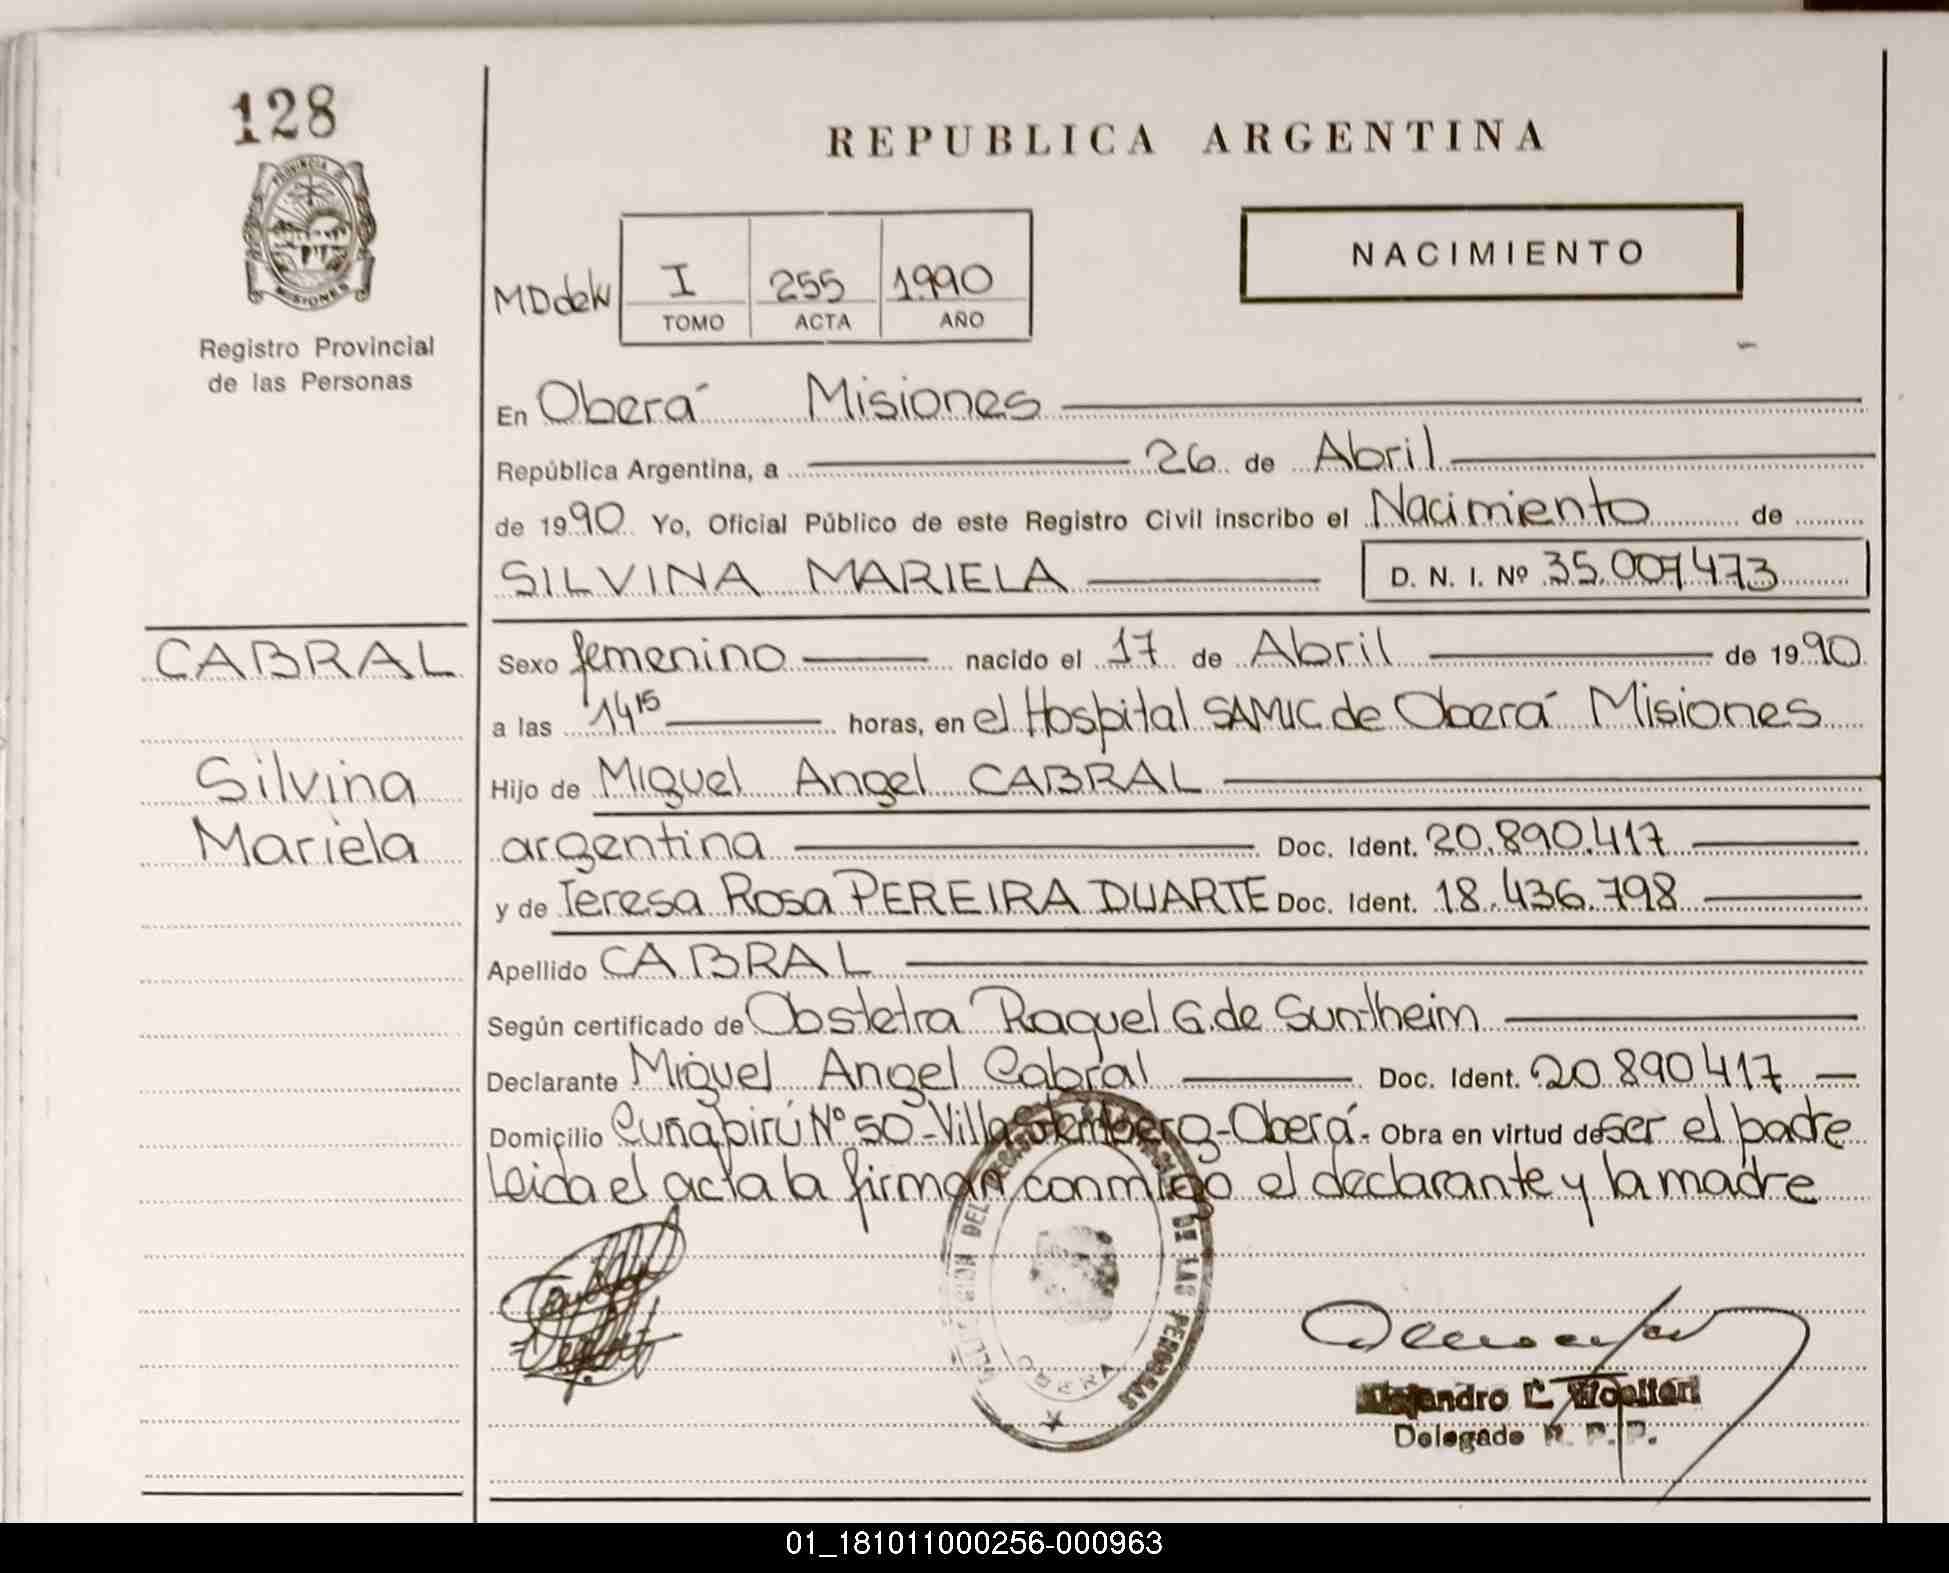 128
PROVINCIA DE
MISIONES
Registro Provincial
de las Personas
REPUBLICA ARGENTINA
NACIMIENTO
MDdeW
I 255 1990
TOMO ACTA AÑO
En Oberá Misiones
República Argentina, a 26 de Abril
de 1990 Yo, Oficial Público de este Registro Civil inscribo el Nacimiento de
SILVINA MARIELA D. N. I. Nº 35.007.473
CABRAL
Silvina
Mariela
Sexo femenino nacido el 17 de Abril de 1990
a las 14 15 horas, en el Hospital SAMIC de Oberá Misiones
Hijo de Miguel Angel CABRAL
argentina Doc. Ident. 20.890.417
y de Teresa Rosa PEREIRA DUARTE Doc. Ident. 18.436.798
Apellido CABRAL
Según certificado de Obstetra Raquel G. de Suntheim
Declarante Miguel Angel Cabral Doc. Ident. 20890417
Domicilio Cuñapirú Nº 50-Villa Stemberg-Oberá. Obra en virtud de ser el padre
Leida el acta la firman conmigo el declarante y la madre
DE LAS PERSONAS
OBERA
Alejandro C.
Delegado R. P. P.
01_181011000256-000963